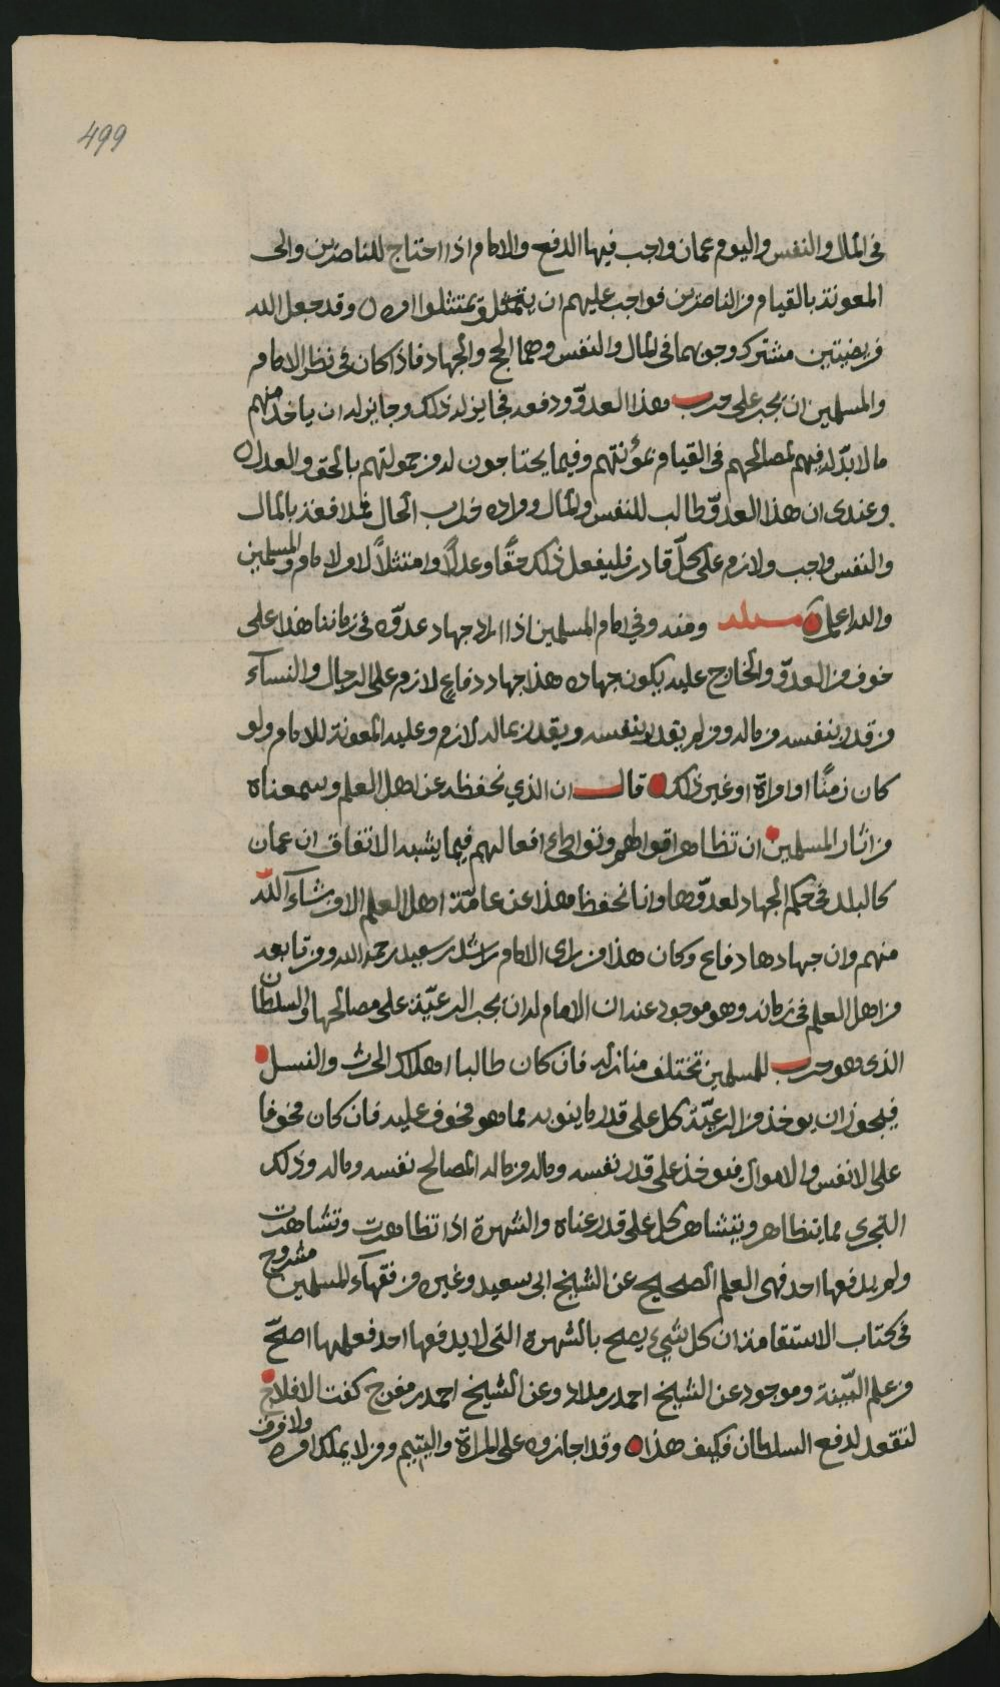 499
في المال والنفس واليوم عمان واجب فيها الدفع والامام اذا احتاج للناصرين والى
المعونة بالقيام من الناصرين فواجب عليهم ان يمتثلوا امره وقد جعل الله
فريضتين مشترك وجوبهما في المال والنفس وهما الحج والجهاد فاذا كان في نظر الامام
والمسلمين ان يجبر على حرب هذا العدوّ ودفعه فجايز له ذلك وجايز له ان ياخذ منهم
ما لا بدّ له فيهم لمصالحهم في القيام بمؤنتهم وفيما يحتاجون له من حمولتهم بالحق والعدل
وعندي ان هذا العدوّ طالب للنفس والمال ومراده خراب الحال فمدافعته بالمال
والنفس واجب ولازم على كلّ قادر فليفعل ذلك حقًا وعدلًا وامتثلاً لامر الامام والمسلمين
والله اعلم مسئلة ومنه وفي امام المسلمين اذا اراد جهاد عدوّه في زماننا هذا على
خوف من العدوّ والخارج عليه يكون جهاده هذا جهاد دفاعٍ لازم على الرجال والنسآء
من قدر بنفسه وماله ومن لم يقدر بنفسه ويقدر بماله لازم وعليه المعونة للامام ولو
كان زمنًا او امراة او غير ذلك قال ان الذي نحفظه عن اهل العلم وسمعناه
من اثار المسلمين ان تظاهر اقوالهم وتواطئ افعالهم فيما يشبه الاتفاق ان عمان
كالبلد في حكم الجهاد لعدوّها وانا نحفظ هذا عن عامّة اهل العلم الا من شآء اللّه
منهم وان جهادها دفاع وكان هذا من راى الامام راشد بن سعيد رحمه الله ومن تابعه
من اهل العلم في زمانه وهو موجود عنه ان الامام له ان يجبر الرعيّة على مصالحها والسلطان
الذى هو حرب للمسلمين تختلف منازله فان كان طالبا اهلاك الحرث والنسل
فيجوز ان يوخذ من الرعيّة كل على قدر ما ينوبه مما هو مخوف عليه فان كان مخوفا
على الانفس والاموال فيوخذ على قدر نفسه وماله من ماله لمصالح نفسه وماله وذلك
التجرى مما يتظاهر ويتشاهر كل على قدر غناه والشهرة اذا تظاهرت وتشاهرت
ولم يدفعها احد فهى العلم الصحيح عن الشيخ ابى سعيد وغيره من فقهآء المسلمين مشروح
في كتاب الاستقامة ان كل شيء يصح بالشهرة التى لا يدفعها احد فعلمها اصحّ
من علم البّينة وموجود عن الشيخ احمد بن مداد وعن الشيخ احمد بن مفرج كفت الافلاج
لتقعد لدفع السلطان فكيف هذا وقد اجازوه على المراة واليتيم ومن لا يملك امره ولا فرق